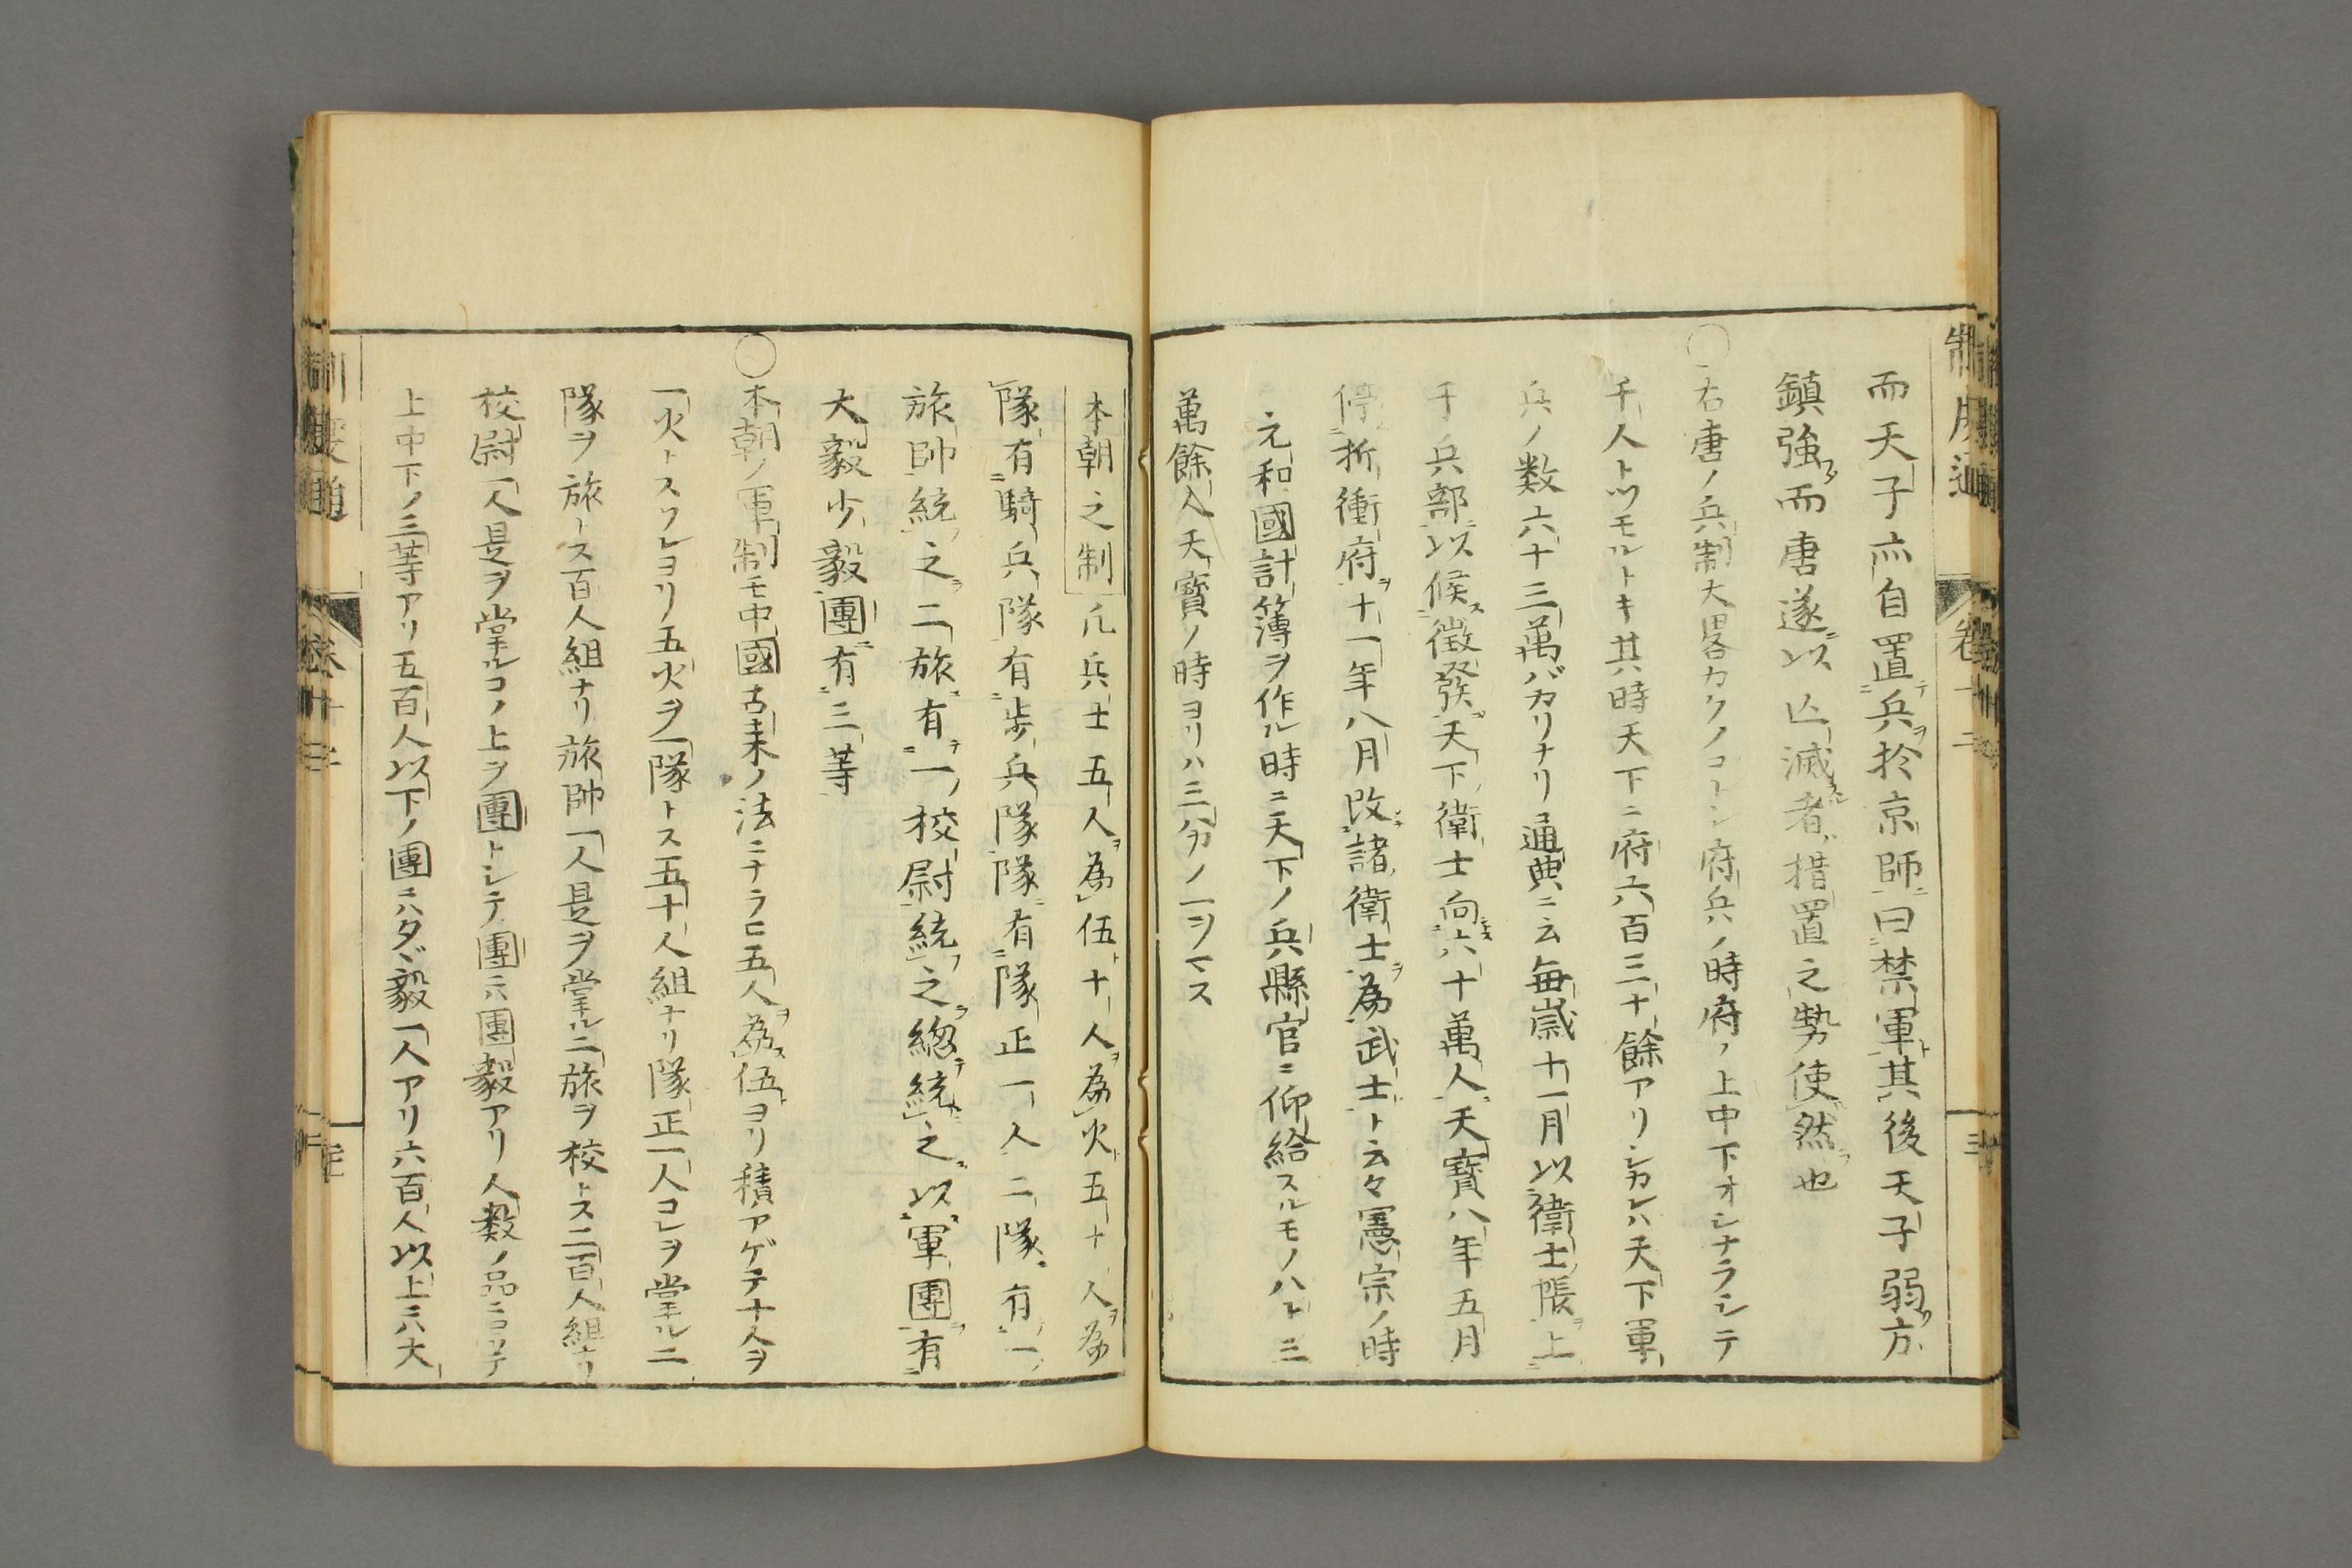 而天子亦自置兵於京師曰禁軍其後天子弱方
鎮強而唐遂以亡滅者措置之勢使然也
○右唐ノ兵制大畧カクノコトシ府兵ノ時府ノ上中下オシナラシテ
千人トツモルトキ其時天下ニ府六百三十餘アリシカレハ天下軍
兵ノ数六十三萬バカリナリ通典ニ云毎歳十一月以衛士帳上
于兵部以候徴發天下衛士向六十萬人天寳八年五月
停折衝府十一年八月改諸衛士為武士ト云々憲宗ノ時
元和國計簿ヲ作ル時ニ天下ノ兵縣官ニ仰給スルモノ八十三
萬餘人天寳ノ時ヨリハ三分ノ一ヲマス
本朝之制凡兵士五人為伍十人為火五十人為
隊有騎兵隊有歩兵隊隊有隊正一人二隊有一
旅帥統之二旅有一校尉統之總統之以軍團有
大毅少毅團有三等
○本朝ノ軍制モ中國古来ノ法ニナラヒ五人為伍ヨリ積アゲテ十人ヲ
一火トスソレヨリ五火ヲ一隊トス五十人組ナリ隊正一人コレヲ掌ル二
隊ヲ旅トス百人組ナリ旅帥一人是ヲ掌ル二旅ヲ校トス二百人組ナリ
校尉一人是ヲ掌ルコノ上ヲ團トシテ團ニハ團毅アリ人数ノ品ニヨリテ
上中下ノ三等アリ五百人以下ノ團ニハタヾ毅一人アリ六百人以上ニハ大